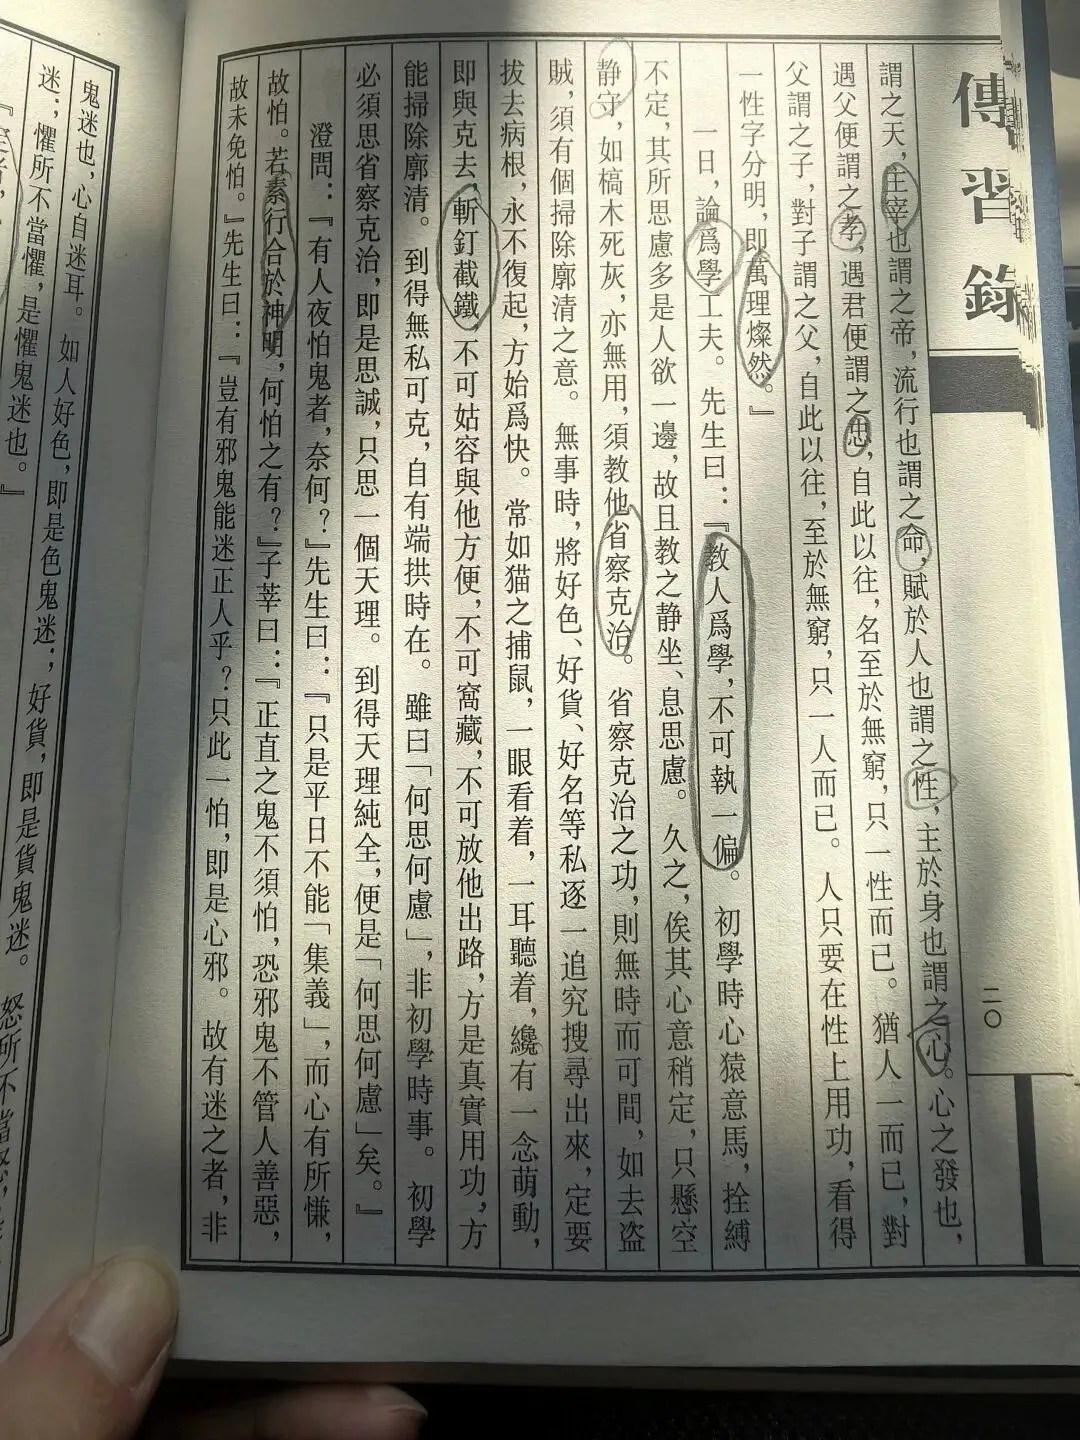 傳習錄
二〇
謂之天，主宰也謂之帝，流行也謂之命，賦於人也謂之性，主於身也謂之心。心之發也，
遇父便謂之孝，遇君便謂之忠，自此以往，名至於無窮，只一性而已。猶人一而已，對
父謂之子，對子謂之父，自此以往，至於無窮，只一人而已。人只要在性上用功，看得
一性字分明，即萬理燦然。』
一日，論爲學工夫。先生曰：『教人爲學，不可執一偏。初學時心猿意馬，拴縛
不定，其所思慮多是人欲一邊，故且教之静坐、息思慮。久之，俟其心意稍定，只懸空
静守，如槁木死灰，亦無用，須教他省察克治。省察克治之功，則無時而可間，如去盗
賊，須有個掃除廓清之意。無事時，將好色、好貨、好名等私逐一追究搜尋出來，定要
拔去病根，永不復起，方始爲快。常如猫之捕鼠，一眼看着，一耳聽着，纔有一念萌動，
即與克去，斬釘截鐵，不可姑容與他方便，不可窩藏，不可放他出路，方是真實用功，方
能掃除廓清。到得無私可克，自有端拱時在。雖曰「何思何慮」，非初學時事。初學
必須思省察克治，即是思誠，只思一個天理。到得天理純全，便是「何思何慮」矣。』
澄問：『有人夜怕鬼者，奈何？』先生曰：『只是平日不能「集義」，而心有所慊，
故怕。若素行合於神明，何怕之有？』子莘曰：『正直之鬼不須怕，恐邪鬼不管人善惡，
故未免怕。』先生曰：『豈有邪鬼能迷正人乎？只此一怕，即是心邪。故有迷之者，非
鬼迷也，心自迷耳。如人好色，即是色鬼迷；好貨，即是貨鬼迷。怒所不當怒，
迷；懼所不當懼，是懼鬼迷也。』